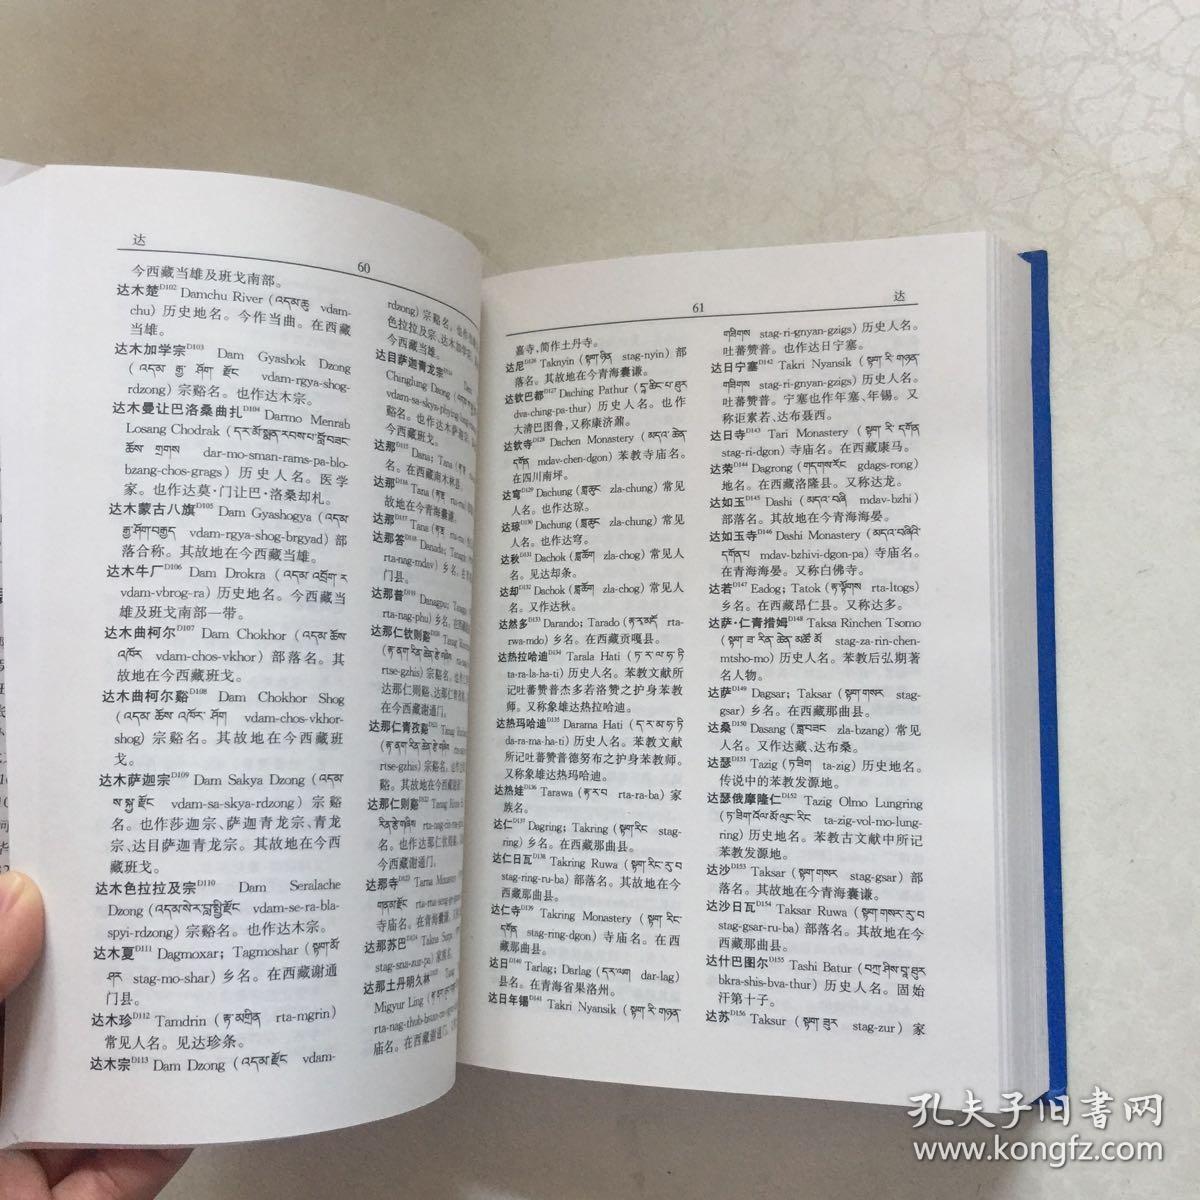 达
60
今西藏当雄及班戈南部。
达木楚D102 Damchu River (འདམ་ཆུ vdam-
chu) 历史地名。今作当曲。在西藏
当雄。
达木加学宗D103 Dam Gyashok Dzong
(འདམ་ རྒྱ་ ཤོག་ རྫོང vdam-rgya-shog-
rdzong) 宗谿名。也作达木宗。
达木曼让巴洛桑曲扎D104 Darmo Menrab
Losang Chodrak (དར་མོ་སྨན་རམས་པ་བློ་བཟང་
ཆོས་ གྲགས dar-mo-sman-rams-pa-blo-
bzang-chos-grags) 历史人名。医学
家。也作达莫·门让巴·洛桑却札。
达木蒙古八旗D105 Dam Gyashogya (འདམ་
རྒྱ་ཤོག་བརྒྱད vdam-rgya-shog-brgyad) 部
落合称。其故地在今西藏当雄。
达木牛厂D106 Dam Drokra (འདམ་འབྲོག་ར
vdam-vbrog-ra) 历史地名。今西藏当
雄及班戈南部一带。
达木曲柯尔D107 Dam Chokhor (འདམ་ཆོས་
འཁོར vdam-chos-vkhor) 部落名。其
故地在今西藏班戈。
达木曲柯尔谿D108 Dam Chokhor Shog
(འདམ་ ཆོས་ འཁོར་ ཤོག vdam-chos-vkhor-
shog) 宗谿名。其故地在今西藏班
戈。
达木萨迦宗D109 Dam Sakya Dzong (འདམ་
ས་སྐྱ་རྫོང vdam-sa-skya-rdzong) 宗谿
名。也作莎迦宗、萨迦青龙宗、青龙
宗、达目萨迦青龙宗。其故地在今西
藏班戈。
达木色拉拉及宗D110 Dam Seralache
Dzong (འདམ་སེ་ར་བླ་སྤྱི་རྫོང vdam-se-ra-bla-
spyi-rdzong) 宗谿名。也作达木宗。
达木夏D111 Dagmoxar; Tagmoshar (སྟག་མོ་
ཤར stag-mo-shar) 乡名。在西藏谢通
门县。
达木珍D112 Tamdrin (རྟ་མགྲིན rta-mgrin)
常见人名。见达珍条。
达木宗D113 Dam Dzong (འདམ་རྫོང vdam-
rdzong) 宗谿名。也作
色拉拉及宗、达木宗。
今西藏当雄。
达目萨迦青龙宗D114 Dam
Chinglung Dzong (འདམ་
vdam-sa-skya-phying-lung
谿名。也作达木萨迦宗。
今西藏班戈。
达那D115 Dana; Tana (
名。在西藏南木林县。
达那D116 Tana (
故地在今青海囊谦。
达那D117 Tana (
达那答D118 Danada;
rta-nag-mdav) 乡名。在
门县。
达那普D119 Danagpu;
rta-nag-phu) 乡名。在西藏
达那仁钦则谿D120 Tanag
rtse-gzhis) 宗谿名。
达那仁则谿、达那仁青孜
在今西藏谢通门。
达那仁青孜谿D121 Tanag
rtse-gzhis) 宗谿名。
谿。其故地在今西藏
达那仁则谿D122 Tanag
名。也作达那仁钦则谿。
今西藏谢通门。
达那寺D123 Tarna Monastery
寺庙名。在青海囊谦。
达那苏巴D124 Takna Surpa
stag-sna-zur-pa) 家族名。
达那土丹明久林D125 Tanag
Migyur Ling
rta-nag-thub-bstan
庙名。在西藏谢通门。
61
达
嘉寺,简作土丹寺。
达尼D126 Taknyin (སྟག་ཉིན stag-nyin) 部
落名。其故地在今青海囊谦。
达钦巴都D127 Daching Pathur (དྭ་ཆིང་པ་ཐུར
dva-ching-pa-thur) 历史人名。也作
大清巴图鲁,又称康济鼐。
达钦寺D128 Dachen Monastery (མདའ་ ཆེན་
དགོན mdav-chen-dgon) 苯教寺庙名。
在四川南坪。
达穹D129 Dachung (ཟླ་ཆུང zla-chung) 常见
人名。也作达琼。
达琼D130 Dachung (ཟླ་ཆུང zla-chung) 常见
人名。也作达穹。
达秋D131 Dachok (ཟླ་ཆོག zla-chog) 常见人
名。见达却条。
达却D132 Dachok (ཟླ་ཆོག zla-chog) 常见人
名。又作达秋。
达然多D133 Darando; Tarado (རྟ་ར་མདོ rta-
rwa-mdo) 乡名。在西藏贡嘎县。
达热拉哈迪D134 Tarala Hati (ཏ་ར་ལ་ཧ་ཏི
ta-ra-la-ha-ti) 历史人名。苯教文献所
记吐蕃赞普杰多若洛赞之护身苯教
师。又称象雄达热拉哈迪。
达热玛哈迪D135 Darama Hati (ད་ར་མ་ཧ་ཏི
da-ra-ma-ha-ti) 历史人名。苯教文献
所记吐蕃赞普德努布之护身苯教师。
又称象雄达热玛哈迪。
达热娃D136 Tarawa (རྟ་ར་བ rta-ra-ba) 家
族名。
达仁D137 Dagring; Takring (སྟག་རིང stag-
ring) 乡名。在西藏那曲县。
达仁日瓦D138 Takring Ruwa (སྟག་རིང་རུ་བ
stag-ring-ru-ba) 部落名。其故地在今
西藏那曲县。
达仁寺D139 Takring Monastery (སྟག་རིང་
དགོན stag-ring-dgon) 寺庙名。在西
藏那曲县。
达日D140 Tarlag; Darlag (དར་ལག dar-lag)
县名。在青海省果洛州。
达日年锡D141 Takri Nyansik (སྟག་རི་གཉན་
གཟིགས stag-ri-gnyan-gzigs) 历史人名。
吐蕃赞普。也作达日宁塞。
达日宁塞D142 Takri Nyansik (སྟག་རི་གཉན་
གཟིགས stag-ri-gnyan-gzigs) 历史人名。
吐蕃赞普。宁塞也作年塞、年锡。又
称讵素若、达布聂西。
达日寺D143 Tari Monastery (སྟག་ རི་ དགོན
stag-ri-dgon) 寺庙名。在西藏康马。
达荣D144 Dagrong (གདགས་རོང gdags-rong)
地名。在西藏洛隆县。又称达龙。
达如玉D145 Dashi (མདའ་བཞི mdav-bzhi)
部落名。其故地在今青海海晏。
达如玉寺D146 Dashi Monastery (མདའ་བཞིའི་
དགོན་པ mdav-bzhivi-dgon-pa) 寺庙名。
在青海海晏。又称白佛寺。
达若D147 Eadog; Tatok (རྟ་ལྟོགས rta-ltogs)
乡名。在西藏昂仁县。又称达多。
达萨·仁青措姆D148 Taksa Rinchen Tsomo
(སྟག་ ཟ་ རིན་ ཆེན་ མཚོ་ མོ stag-za-rin-chen-
mtsho-mo) 历史人名。苯教后弘期著
名人物。
达萨D149 Dagsar; Taksar (སྟག་གསར stag-
gsar) 乡名。在西藏那曲县。
达桑D150 Dasang (ཟླ་བཟང zla-bzang) 常见
人名。又作达藏、达布桑。
达瑟D151 Tazig (ཏ་ཟིག ta-zig) 历史地名。
传说中的苯教发源地。
达瑟俄摩隆仁D152 Tazig Olmo Lungring
(ཏ་ཟིག་འོལ་མོ་ལུང་རིང ta-zig-vol-mo-lung-
ring) 历史地名。苯教古文献中所记
苯教发源地。
达沙D153 Taksar (སྟག་གསར stag-gsar) 部
落名。其故地在今青海囊谦。
达沙日瓦D154 Taksar Ruwa (སྟག་གསར་རུ་བ
stag-gsar-ru-ba) 部落名。其故地在今
西藏那曲县。
达什巴图尔D155 Tashi Batur (བཀྲ་ཤིས་བྷ་ཐུར
bkra-shis-bva-thur) 历史人名。固始
汗第十子。
达苏D156 Taksur (སྟག་ཟུར stag-zur) 家
孔夫子旧书网
www.kongfz.com